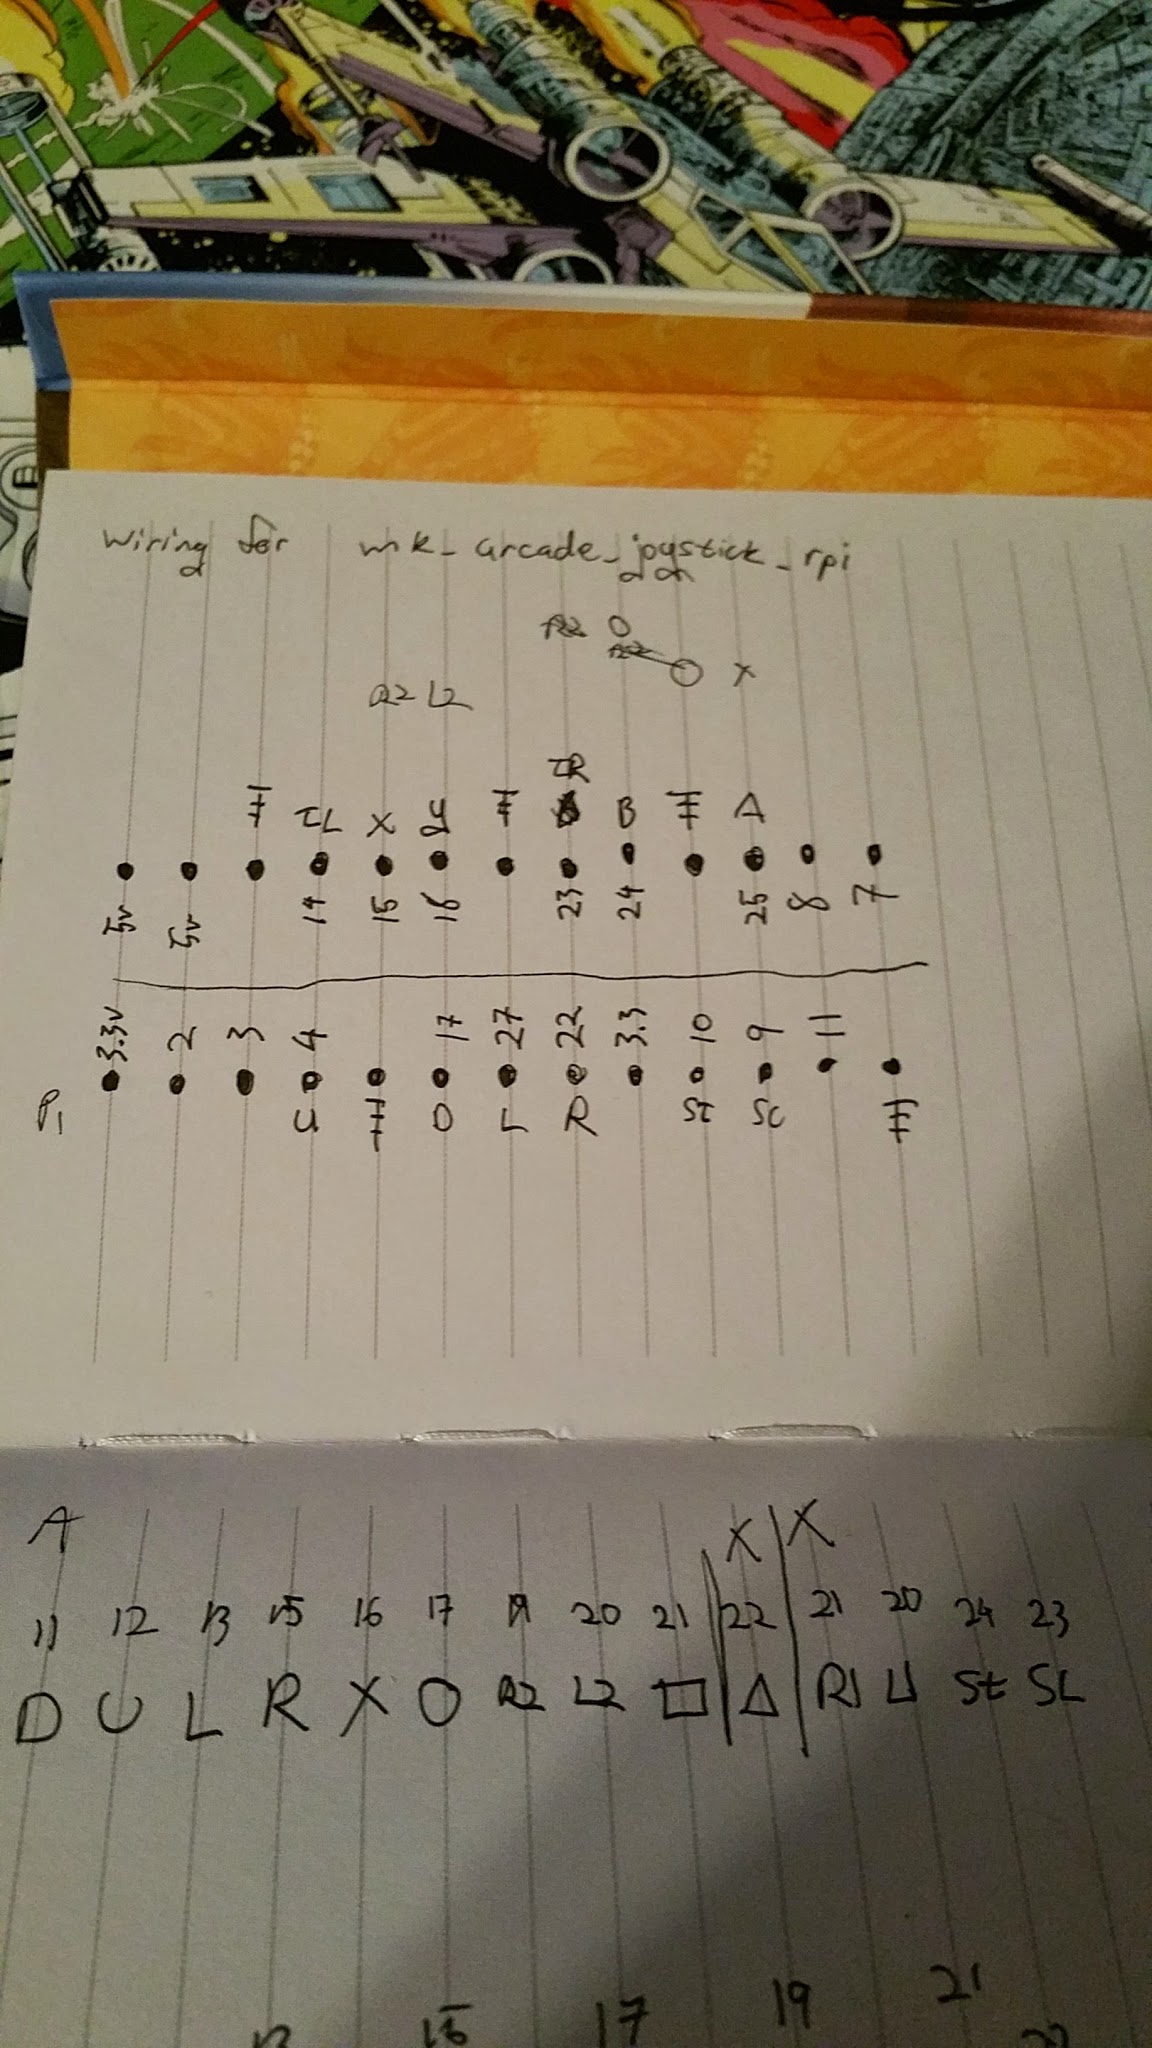 wiring for mk_arcade_joystick_rpi
R2 O
R2 O X
R2 L2
TR
TL X Y B A
5v 5v 14 15 16 23 24 25 8 7
3.3v 2 3 4 17 27 22 3.3 10 9 11
P1 U D L R St Sc
A X X
11 12 13 15 16 17 19 20 21 22 21 20 24 23
D U L R X O R2 L2 □ Δ R1 L1 St SL
15 17 19 21